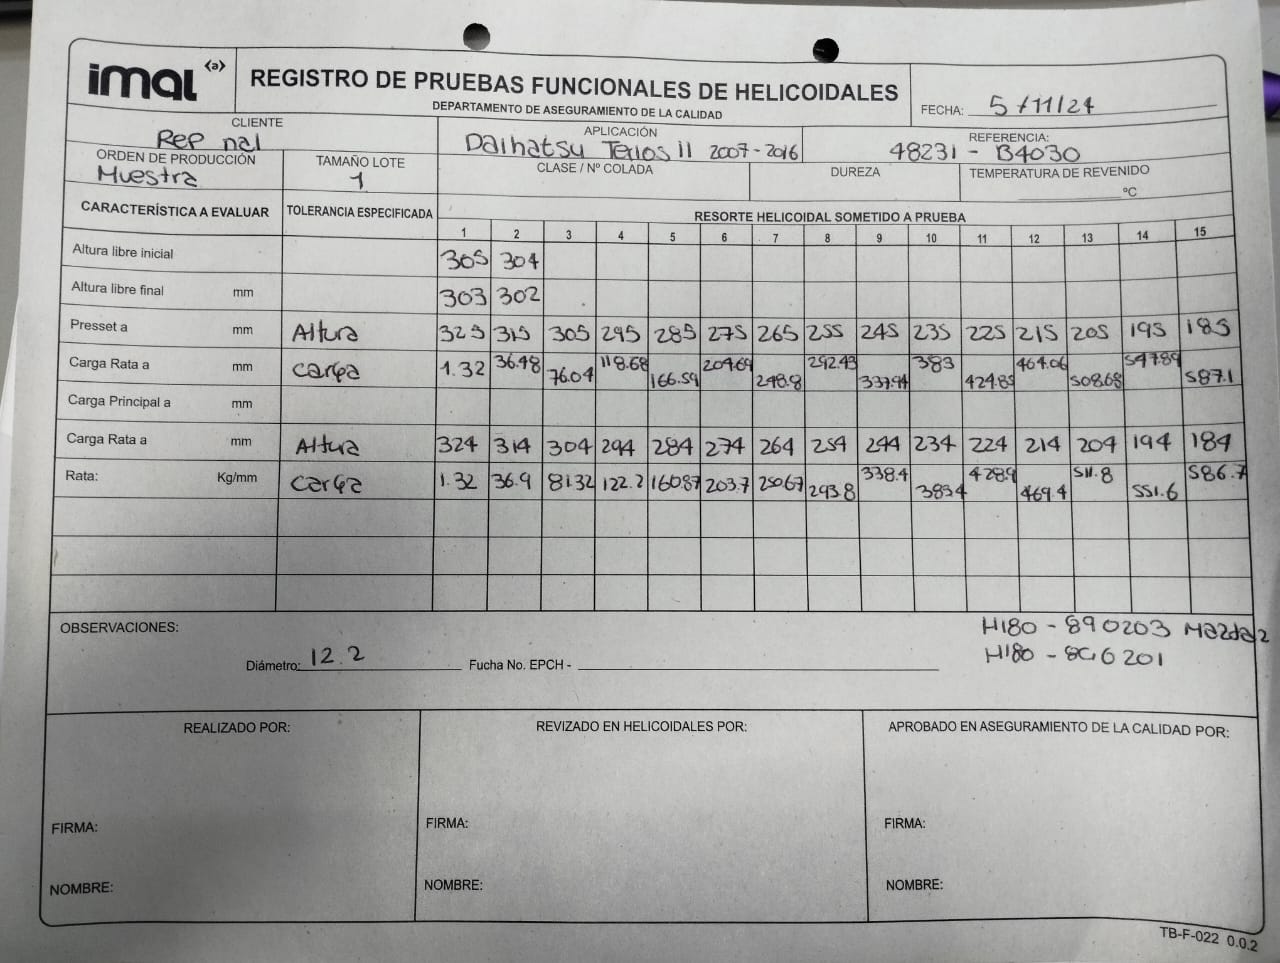 imal (a)
REGISTRO DE PRUEBAS FUNCIONALES DE HELICOIDALES
DEPARTAMENTO DE ASEGURAMIENTO DE LA CALIDAD
FECHA: 5/11/24
CLIENTE
Rep nal
APLICACIÓN
Daihatsu Terios II 2007-2016
REFERENCIA:
48231 - B4030
ORDEN DE PRODUCCIÓN
Muestra
TAMAÑO LOTE
1
CLASE / Nº COLADA
DUREZA
TEMPERATURA DE REVENIDO
ºC
CARACTERÍSTICA A EVALUAR TOLERANCIA ESPECIFICADA RESORTE HELICOIDAL SOMETIDO A PRUEBA
1 2 3 4 5 6 7 8 9 10 11 12 13 14 15
Altura libre inicial 305 304
Altura libre final mm 303 302
Presset a mm Altura 325 315 305 295 285 275 265 255 245 235 225 215 205 195 185
Carga Rata a mm Carga 1.32 36.48 76.04 118.68 166.59 204.69 248.8 292.43 337.94 383 424.85 464.06 508.68 547.89 587.1
Carga Principal a mm
Carga Rata a mm Altura 324 314 304 294 284 274 264 254 244 234 224 214 204 194 184
Rata: Kg/mm Carga 1.32 36.9 81.32 122.2 160.87 203.7 250.67 293.8 338.4 383.4 428.9 469.4 511.8 551.6 586.7
OBSERVACIONES:
H180 - 890203 Mazda 2
H180 - 8G6201
Diámetro: 12.2 Fucha No. EPCH -
REALIZADO POR: REVIZADO EN HELICOIDALES POR: APROBADO EN ASEGURAMIENTO DE LA CALIDAD POR:
FIRMA: FIRMA: FIRMA:
NOMBRE: NOMBRE: NOMBRE:
TB-F-022 0.0.2